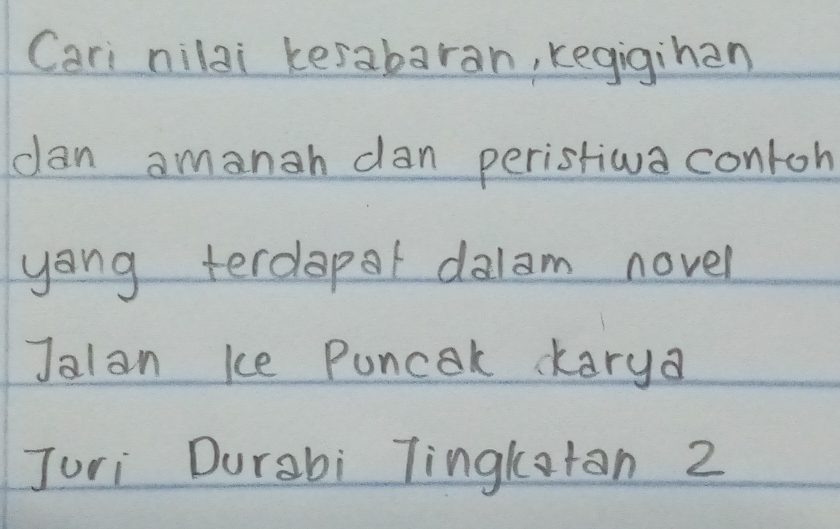 Cari nilai kesabaran, kegigihan
dan amanah dan peristiwa contoh
yang terdapat dalam novel
Jalan ke Puncak karya
Juri Durabi Tingkatan 2